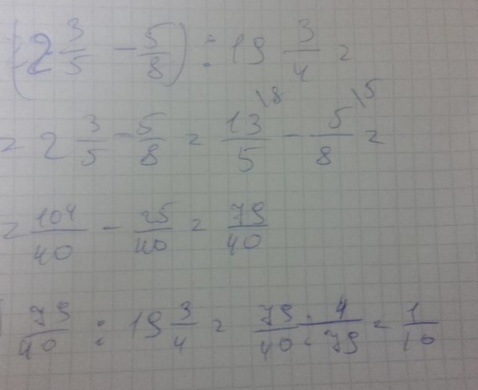 (2 3/5 - 5/8) : 19 3/4 =
= 2 3/5 - 5/8 = 13/5 \8 - 5/8 \5 =
= 104/40 - 25/40 = 79/40
79/40 : 19 3/4 = 79/40 · 4/79 = 1/10